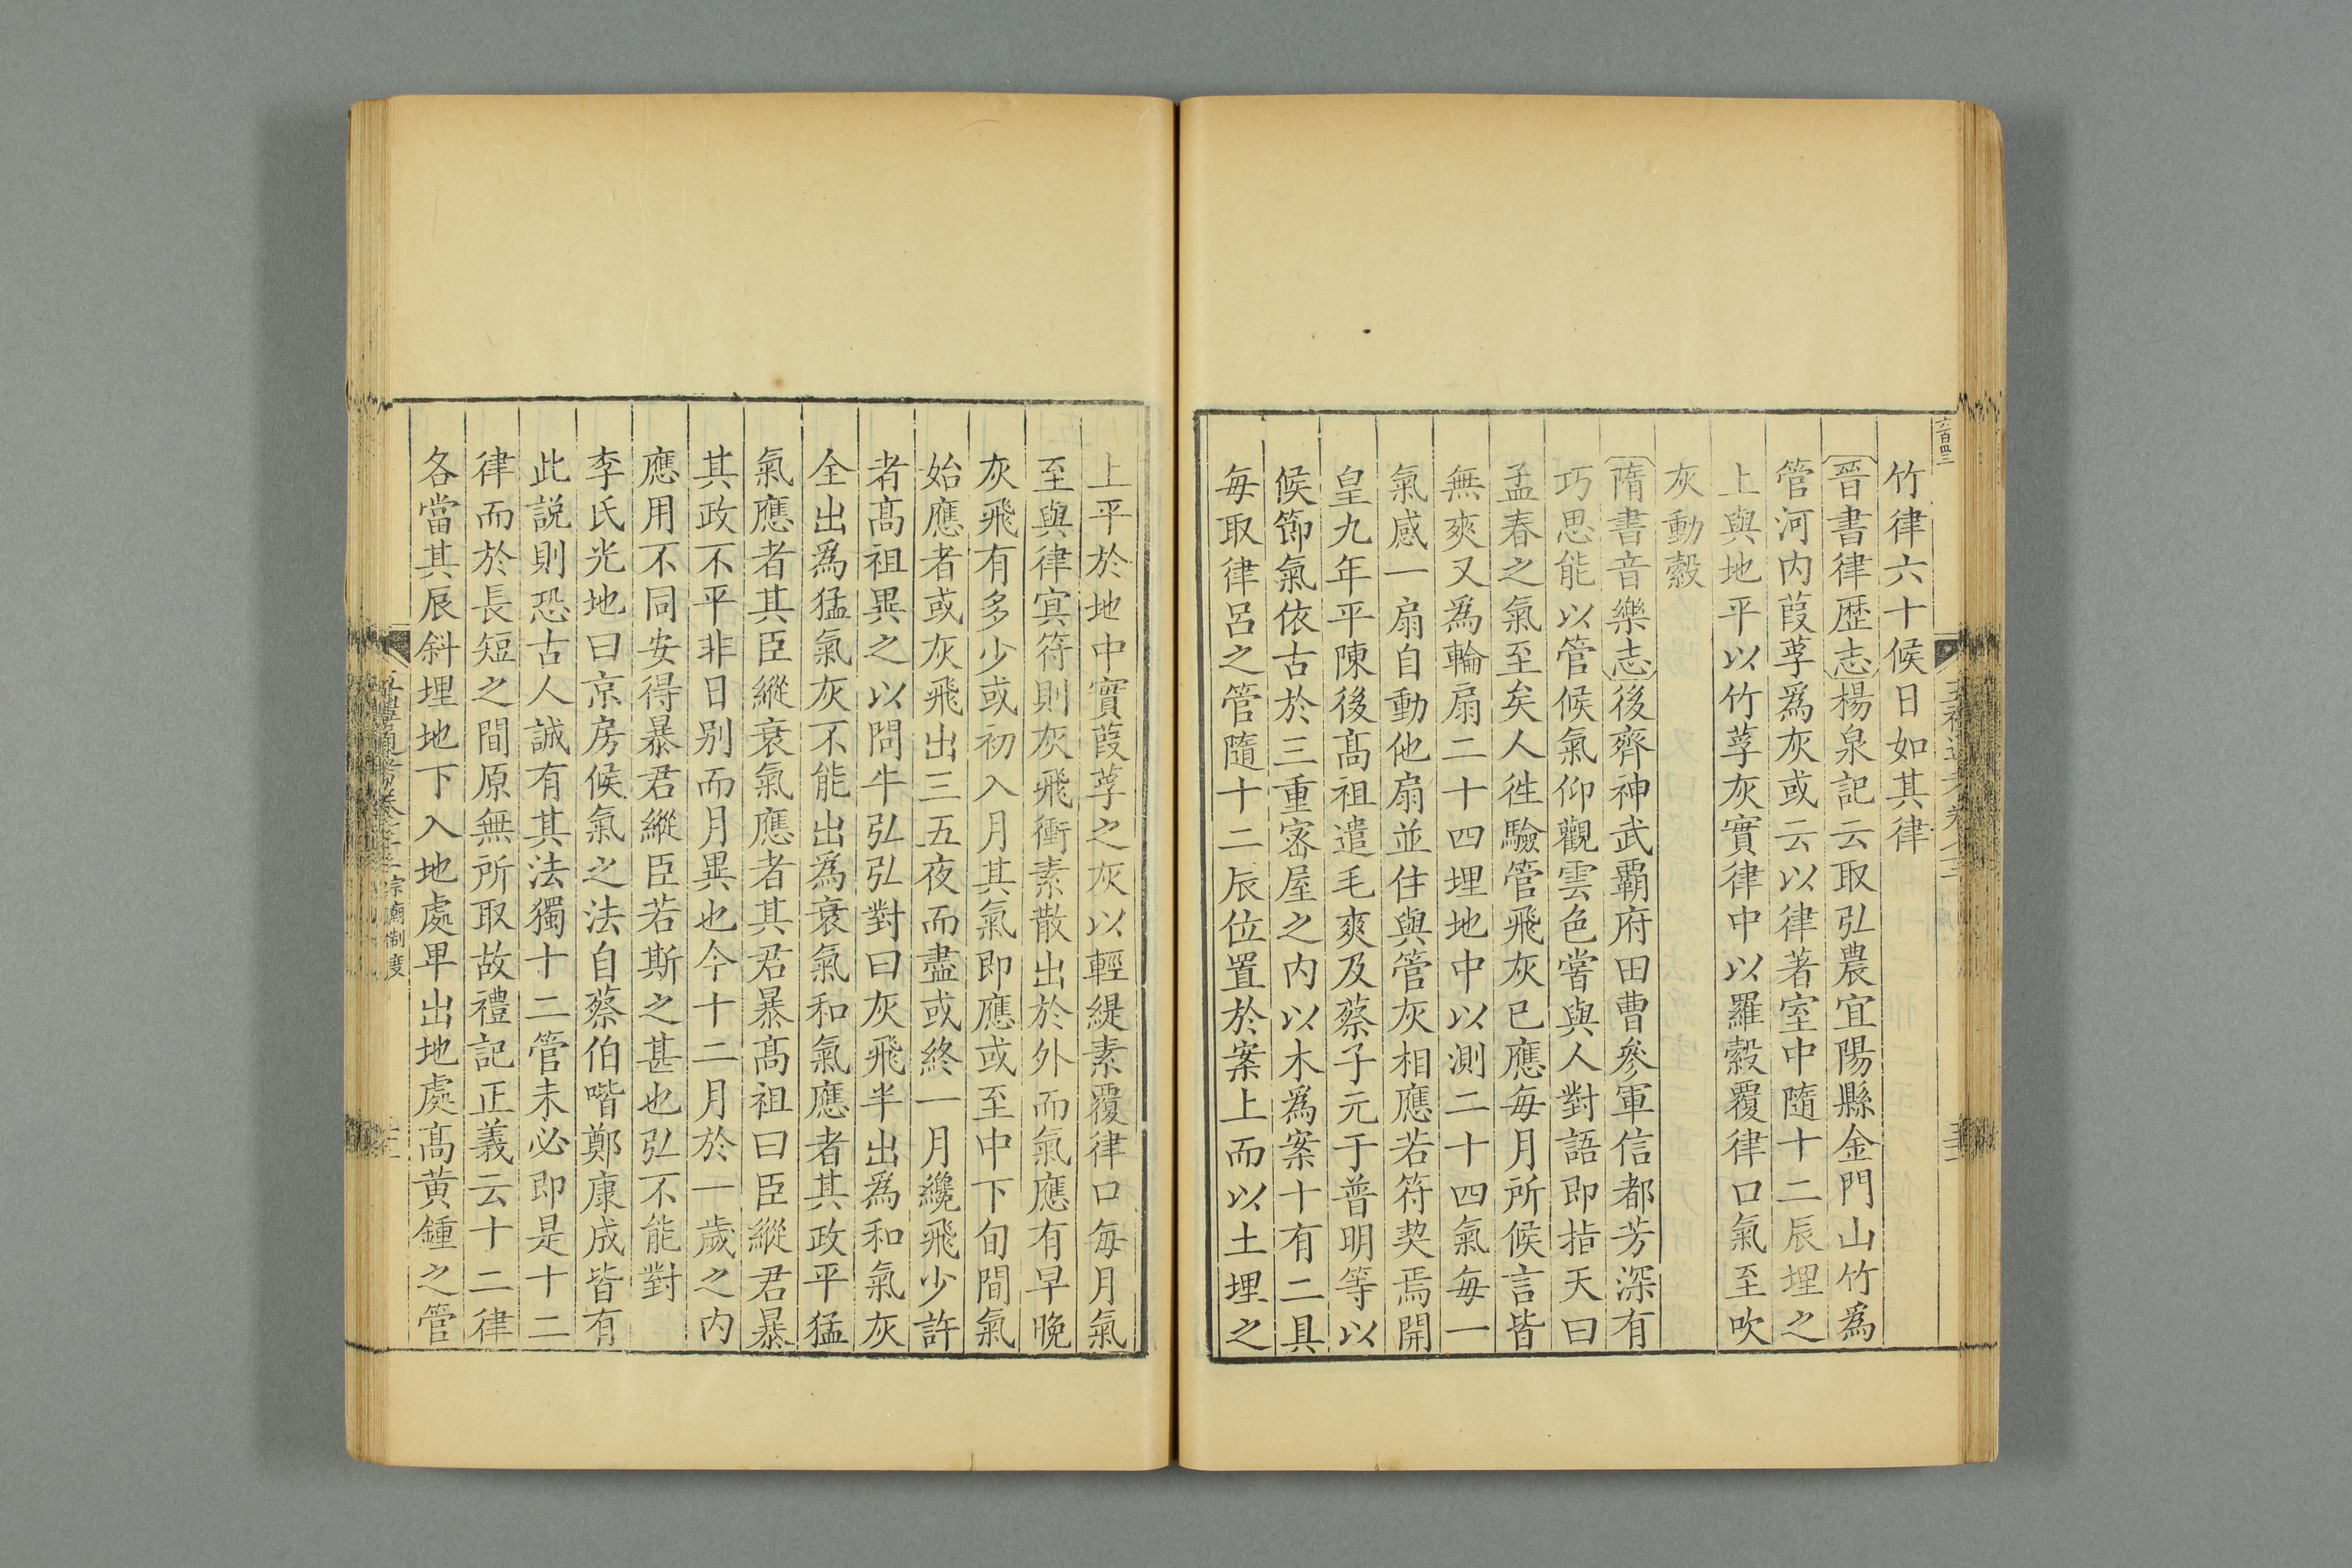 六百四三
竹律六十候日如其律
晉書律歷志楊泉記云取弘農宜陽縣金門山竹爲
管河内葭莩爲灰或云以律著室中隨十二辰埋之
上與地平以竹莩灰實律中以羅縠覆律口氣至吹
灰動縠
隋書音樂志後齊神武霸府田曹參軍信都芳深有
巧思能以管候氣仰觀雲色嘗與人對語即指天曰
孟春之氣至矣人徃驗管飛灰已應每月所候言皆
無爽又爲輪扇二十四埋地中以測二十四氣每一
氣感一扇自動他扇並住與管灰相應若符契焉開
皇九年平陳後髙祖遣毛爽及蔡子元于普明等以
候節氣依古於三重宻屋之内以木爲案十有二具
每取律呂之管隨十二辰位置於案上而以土埋之
上平於地中實葭莩之灰以輕緹素覆律口每月氣
至與律㝠符則灰飛衝素散出於外而氣應有早晚
灰飛有多少或初入月其氣即應或至中下旬間氣
始應者或灰飛出三五夜而盡或終一月纔飛少許
者髙祖異之以問牛弘弘對曰灰飛半出爲和氣灰
全出爲猛氣灰不能出爲衰氣和氣應者其政平猛
氣應者其臣縱衰氣應者其君暴髙祖曰臣縱君暴
其政不平非日别而月異也今十二月於一歲之内
應用不同安得暴君縱臣若斯之甚也弘不能對
李氏光地曰京房候氣之法自蔡伯喈鄭康成皆有
此説則恐古人誠有其法獨十二管未必即是十二
律而於長短之間原無所取故禮記正義云十二律
各當其辰斜埋地下入地處卑出地處髙黄鍾之管
宗廟制度